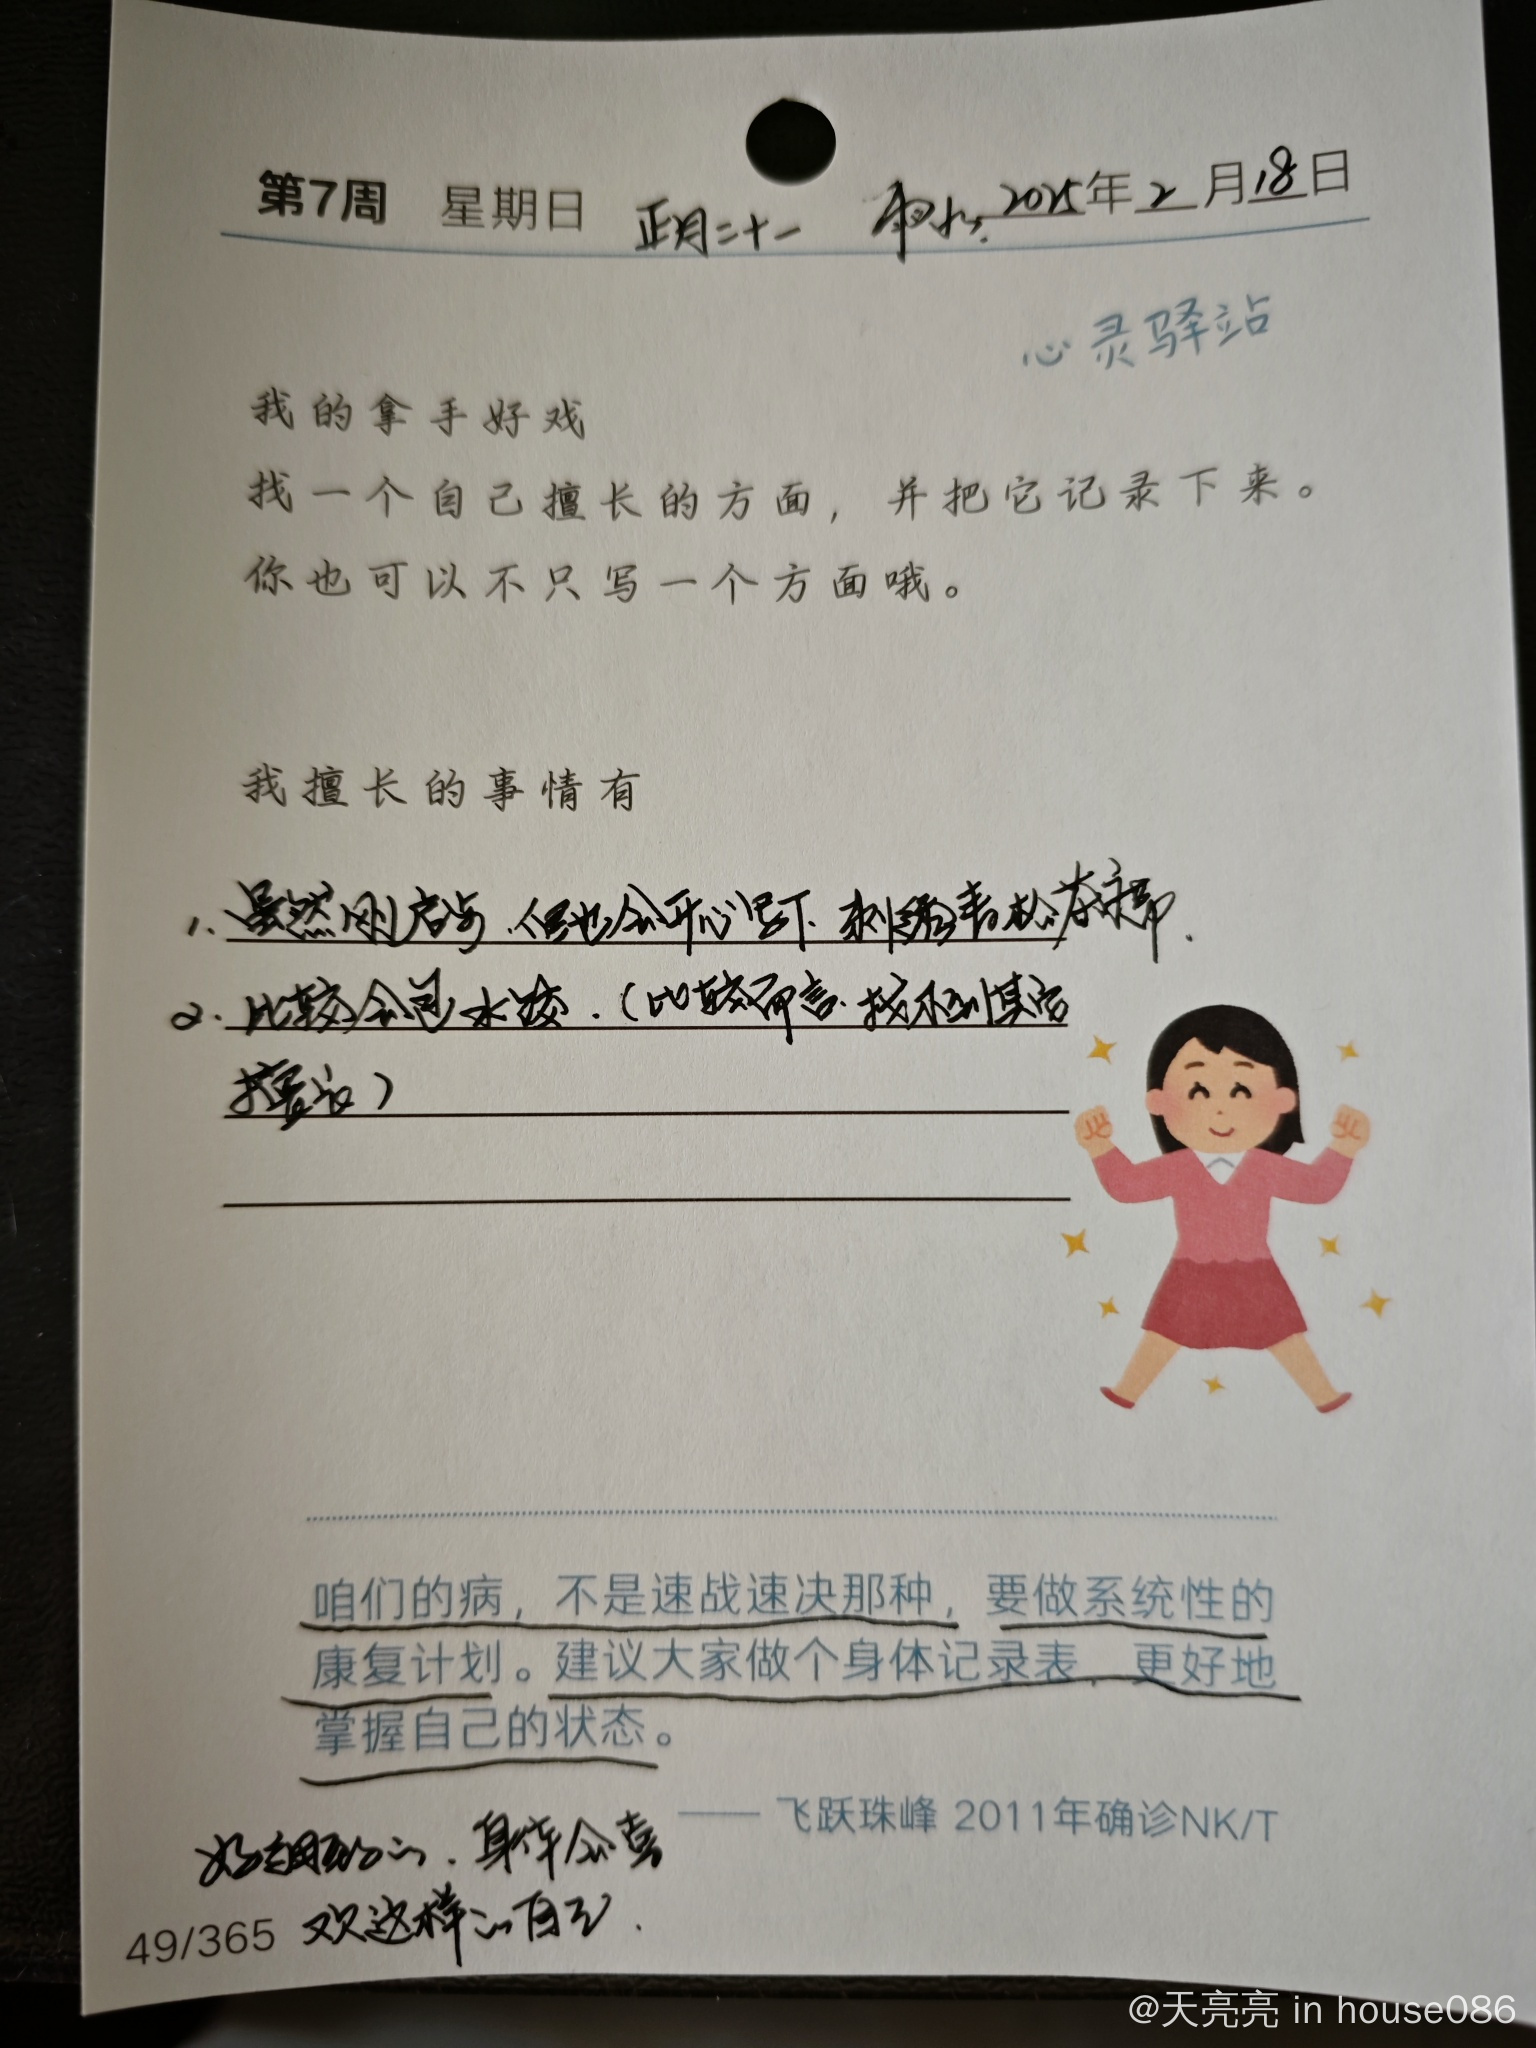 第7周 星期日 正月二十一 雨水 2025年2月18日
心灵驿站
我的拿手好戏
找一个自己擅长的方面，并把它记录下来。
你也可以不只写一个方面哦。
我擅长的事情有
1. 虽然刚启步.但也会开心 下 刺绣
2. 比较会包水饺.（比较而言.找不到其它
擅长）
咱们的病，不是速战速决那种，要做系统性的
康复计划。建议大家做个身体记录表，更好地
掌握自己的状态。
—— 飞跃珠峰 2011年确诊NK/T
身体会喜
欢这样的自己.
49/365
@天亮亮 in house086